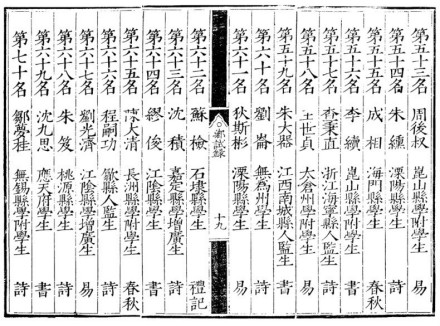 第五十三名 周後叔 崑山縣學附學生 易
第五十四名 朱纁 溧陽縣學生 書
第五十五名 成相 海門縣學生 春秋
第五十六名 李續 崑山縣學附學生 詩
第五十七名 查秉直 浙江海寧縣人監生 詩
第五十八名 王世貞 太倉州學附學生 易
第五十九名 朱大器 江西南城縣人監生 書
第六十名 劉崙 無為州學生 詩
第六十一名 狄斯彬 溧陽縣學生 易
鄉試錄 十九
第六十二名 蘇檢 石埭縣學生 禮記
第六十三名 沈積 嘉定縣學增廣生 詩
第六十四名 繆俊 江陰縣學生 書
第六十五名 陳大清 長洲縣學附學生 春秋
第六十六名 程嗣功 歙縣人監生 詩
第六十七名 劉光濟 江陰縣學增廣生 易
第六十八名 朱笈 桃源縣學生 詩
第六十九名 沈九思 應天府學生 書
第七十名 鄒夢桂 無錫縣學附學生 詩